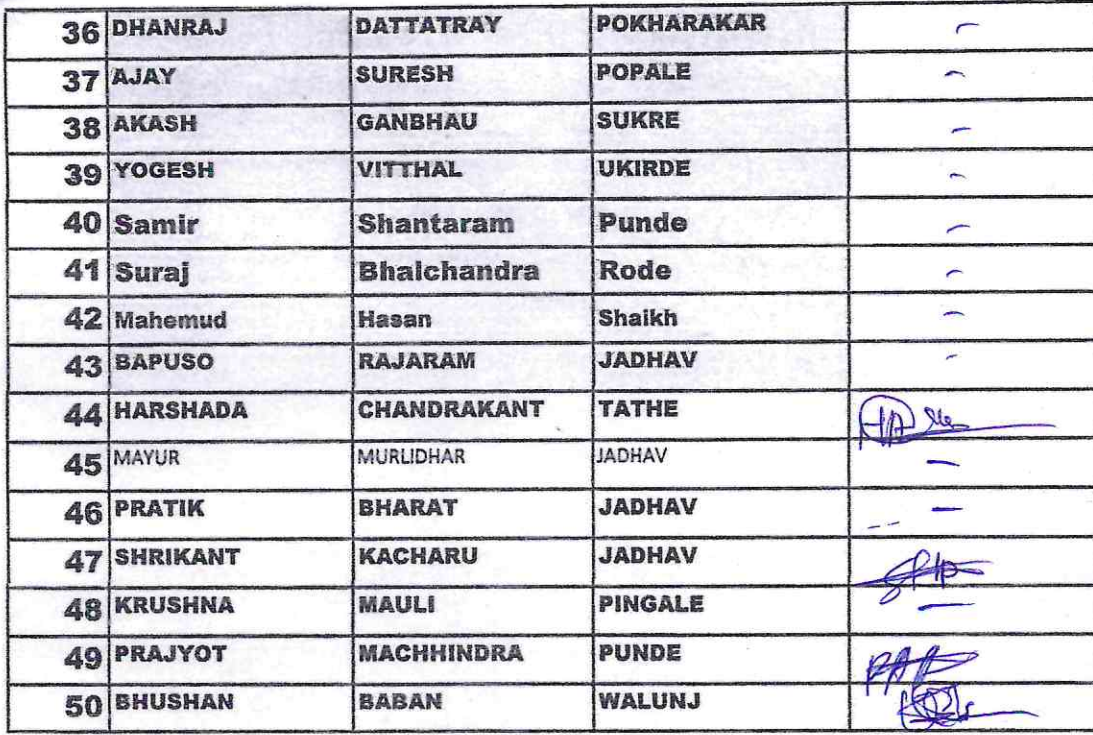 36 DHANRAJ DATTATRAY POKHARAKAR -
37 AJAY SURESH POPALE -
38 AKASH GANBHAU SUKRE -
39 YOGESH VITTHAL UKIRDE -
40 Samir Shantaram Punde -
41 Suraj Bhalchandra Rode -
42 Mahemud Hasan Shaikh -
43 BAPUSO RAJARAM JADHAV -
44 HARSHADA CHANDRAKANT TATHE
45 MAYUR MURLIDHAR JADHAV -
46 PRATIK BHARAT JADHAV -
47 SHRIKANT KACHARU JADHAV
48 KRUSHNA MAULI PINGALE -
49 PRAJYOT MACHHINDRA PUNDE
50 BHUSHAN BABAN WALUNJ